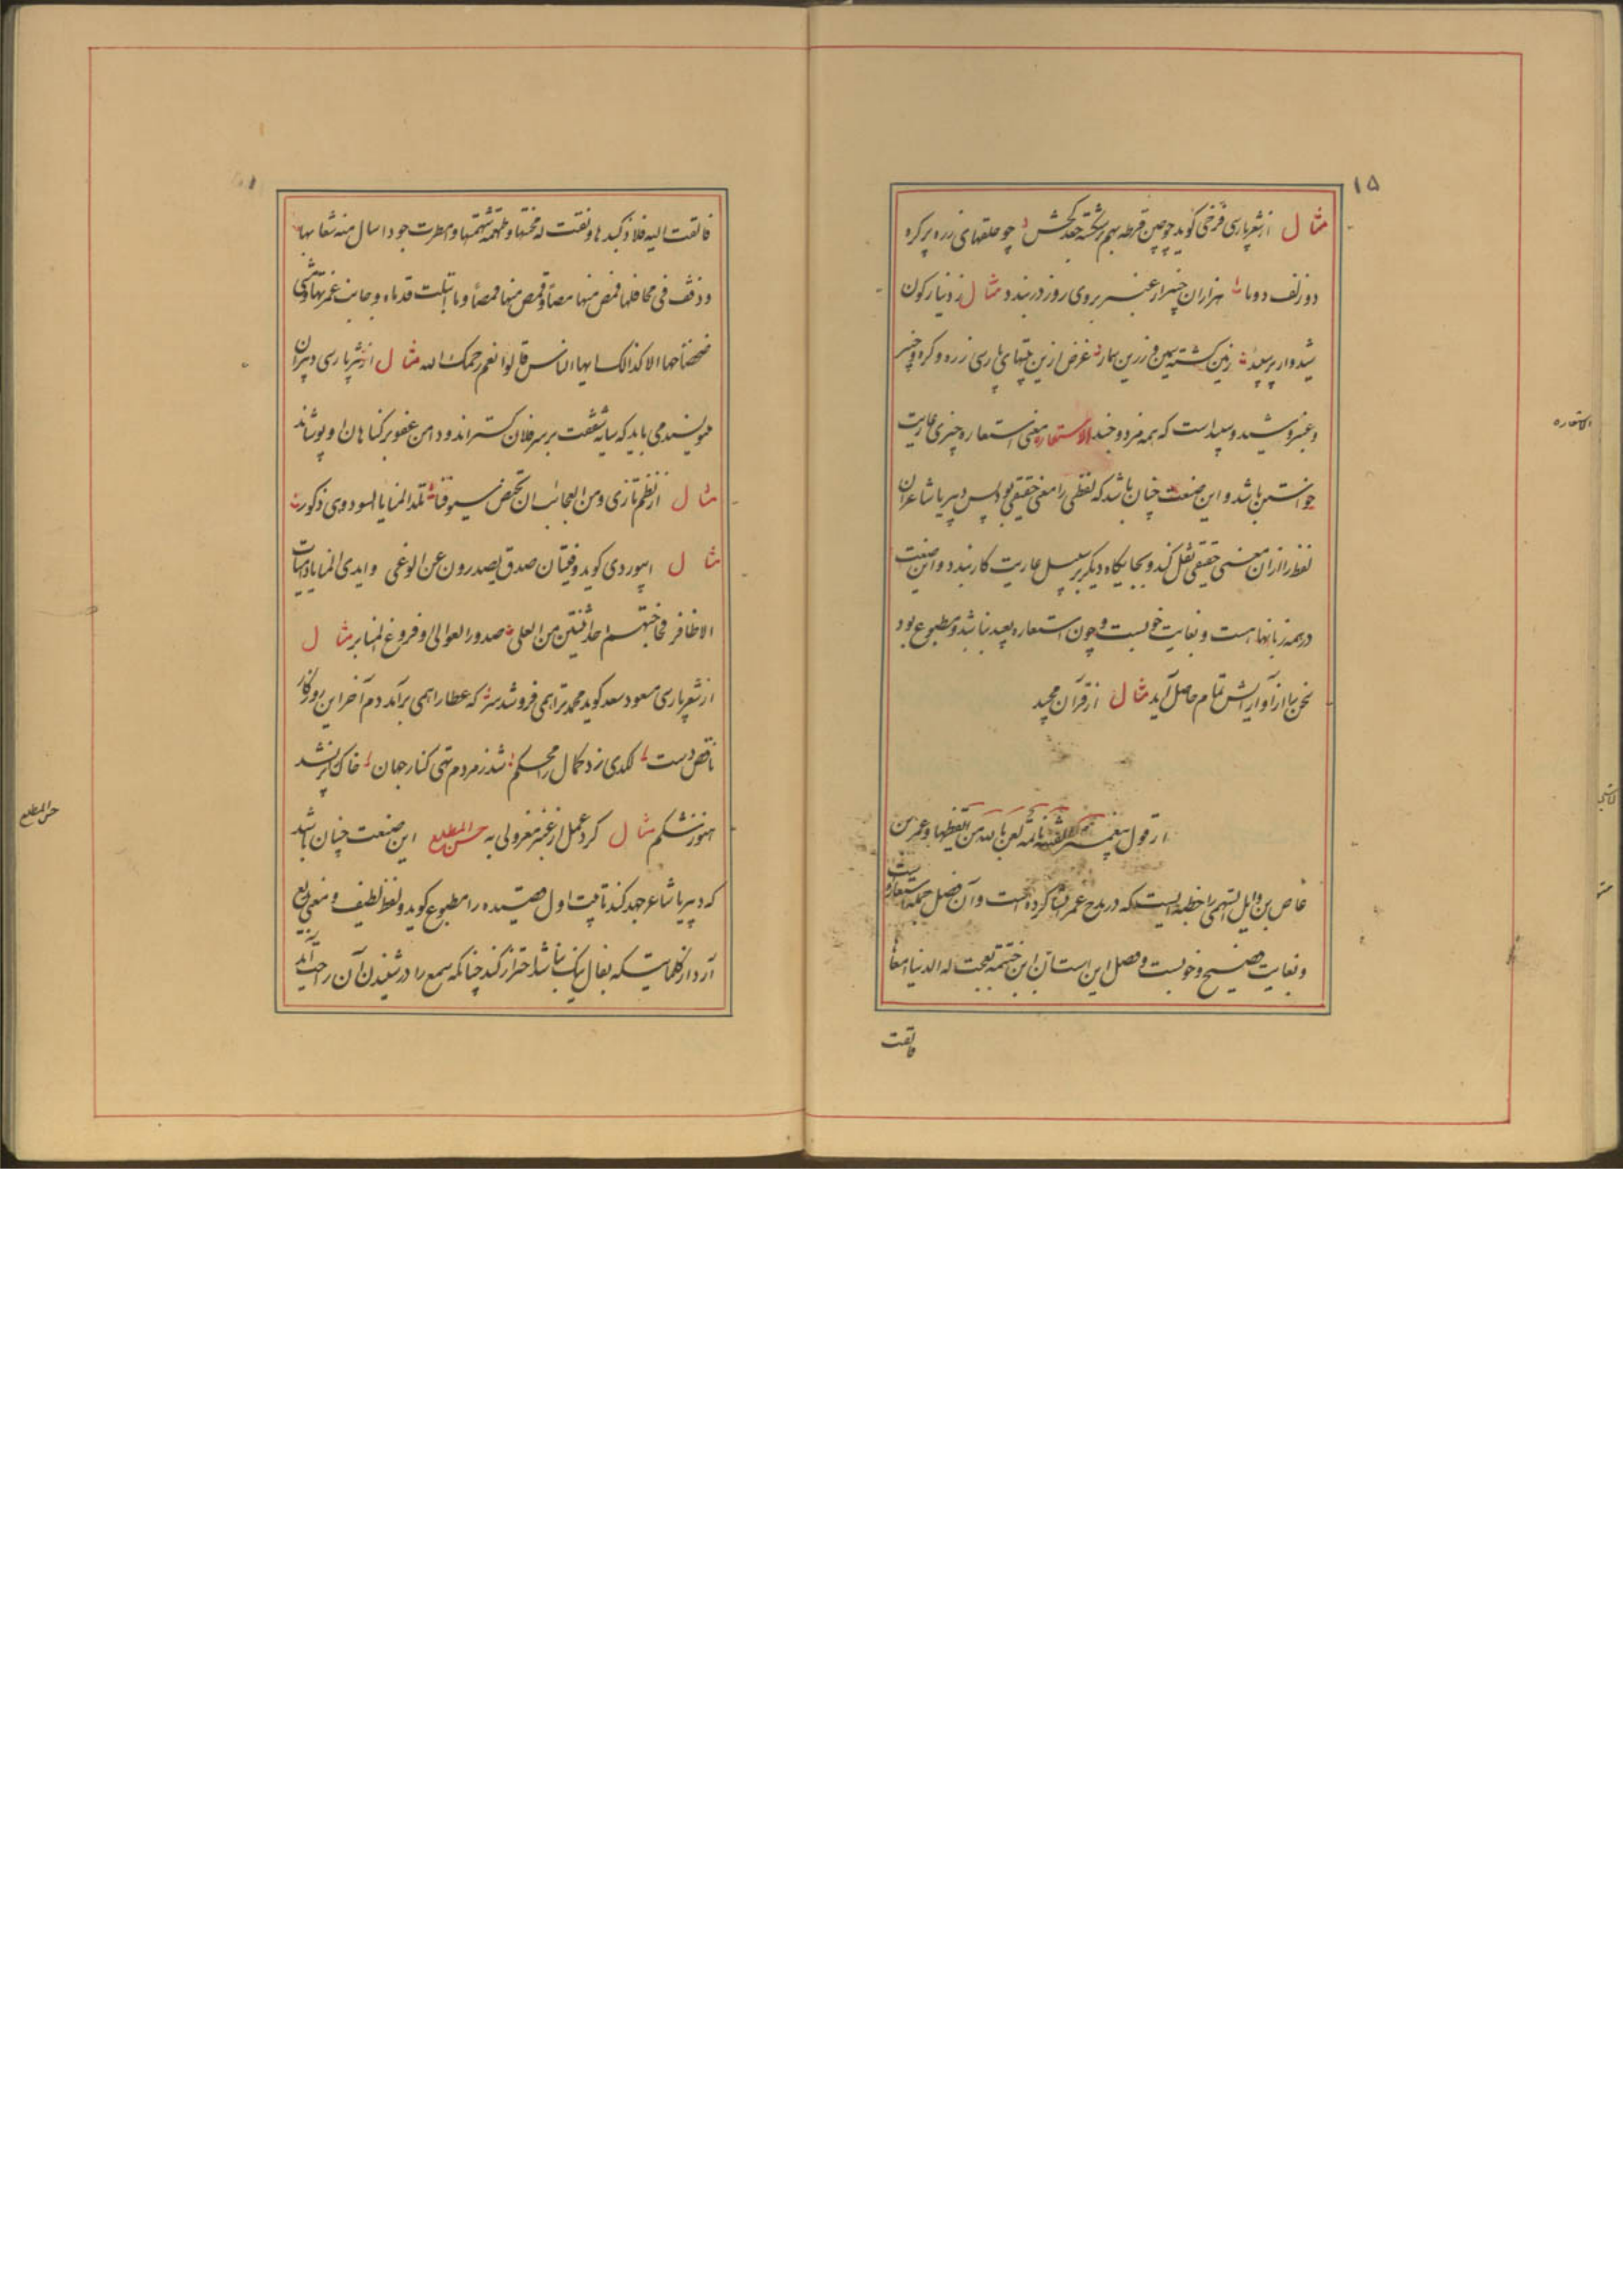 ۱۵
مثال از شعر پارسی فرخی گوید چو چین قرطه بهم بر شکسته جعد کشش چو حلقهای زره پر گره
دو زلف دوتا هزاران چنبر از عنبر بروی روز در بندد مثال ز دینار کون
شید و از پر سپید زمین کشته سیمین و زرین سمار غرض ازین بیتهای پارسی زره و گره و چنبر
و عنبر و شید و سپید است که همه مزدوجند الاستعاره معنی استعاره چیزی عاریت
الاستعاره
خواستن باشد و این صنعت چنان باشد که لفظی را معنی حقیقی بود پس دبیر یا شاعر آن
لفظ را از آن معنی حقیقی نقل کند و بجایکاه دیگر بر سبیل عاریت کار بندد و این صنعت
در همه زبانها هست و بغایت خوبست و چون استعاره بعید نباشد و مطبوع بود
سخن را از آن آرایش تمام حاصل آید مثال از قرآن مجید
از قول پیغمبر الفتنة نائمة لعن الله من ایقظها و عمرو بن
عاص بن وایل السهمی را خطبه ایست که در مدح عمر انشا کرده است و آن فصل جمله استعاره است
و بغایت فصیح و خوبست و فصل این است ان ابن حنتمه بعجت له الدنیا معاها
فالقت
فالقت الیه فلاذ کبدها و نقت له مختها و اطمعته شحمتها و امطرت جودا سال منه شعابها
و دفقت فی محافلها فمص منها مصا و قمص منها قمصا و ما ابتلت قدماه و جانب غمرتها و مشی
ضحضاحها الا کذالک ایها الناس قالوا نعم رحمک الله مثال از نثر پارسی دبیران
می نویسند می باید که سایه شفقت بر سر فلان گستراند و دامن عفو بر گناهان او پوشاند
مثال از نظم تازی و من العجائب ان تحیض سیوفنا تلد المنایا السود و هی ذکور
مثال ابیوردی گوید و فتیان صدق یصدرون عن الوغی و ایدی المنایا دامیات
الاظافر فحاجتهم احدی اثنتین من العلی صدور العوالی او فروع المنابر مثال
از شعر پارسی مسعود سعد گوید محمد ترا همی فروشد سر که عطار را همی برآمد دم آخر این روزگار
ناقص دست لگدی زد کمال را محکم شد ز مردم تهی کنار جهان خاک را پر نشد
هنوز شکم مثال کرد عمل از عنبر معزولی به حسن المطلع این صنعت چنان باشد
حسن المطلع
که دبیر یا شاعر جهد کند تا بیت اول قصیده را مطبوع گوید و لفظ لطیف و معنی بدیع
آرد و از کلماتی که بفال نیک نباشد احتراز کند چنانکه سمع را در شنیدن آن راحت آید